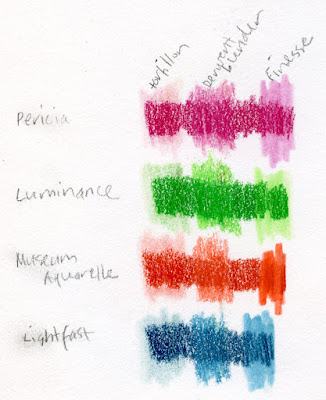 tortillon
Derwent
blender
Finesse
Pericia
Luminance
Museum
Aquarelle
Lightfast